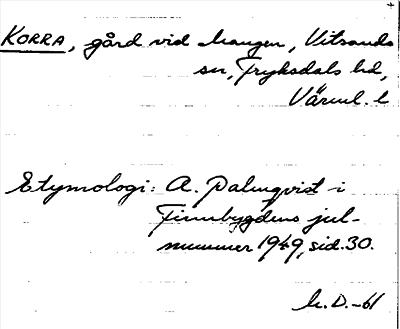 KORRA, gård vid Mangen, Vitsands
sn, Fryksdals hd,
Värml. l
Etymologi: A. Palmqvist i
Finnbygdens jul-
nummer 1949, sid. 30.
h. D. -61